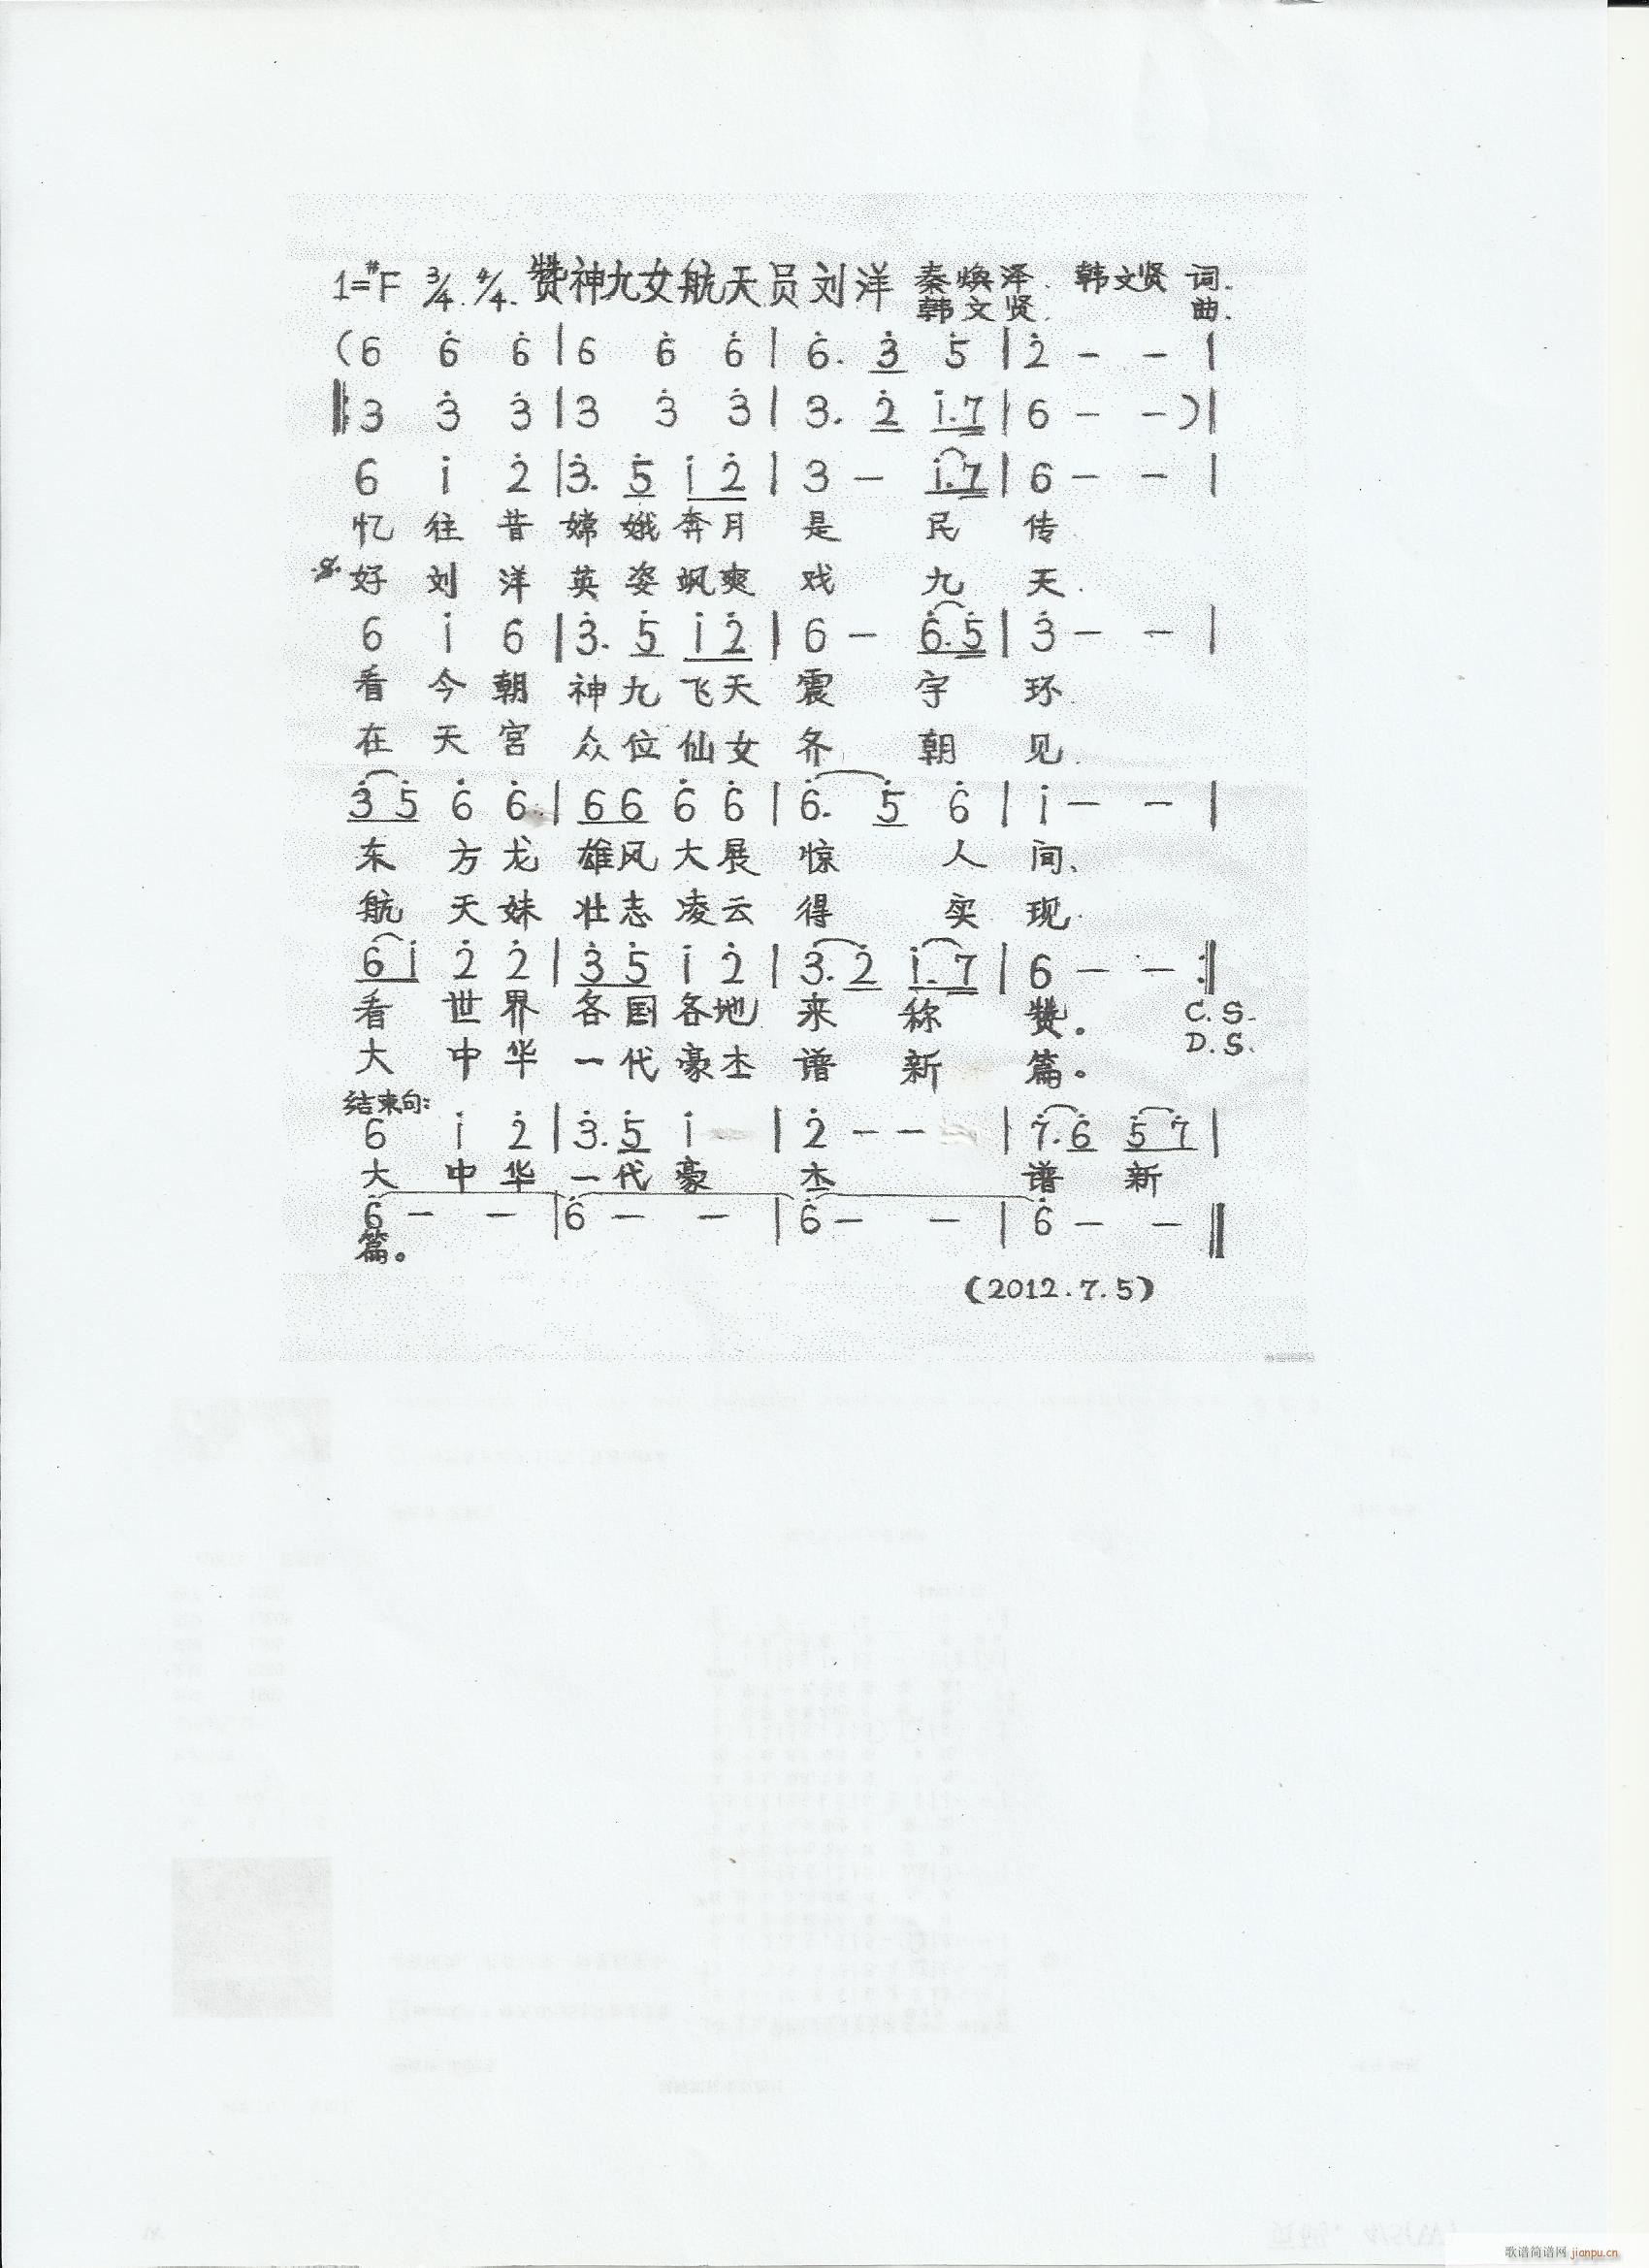 1=#F 3/4. 4/4. 赞神九女航天员刘洋 秦焕泽. 韩文贤 词.
韩文贤. 曲.
(6 6̇ 6̇ | 6 6̇ 6̇ | 6̇. 3̇ 5̇ | 2̇ - - |
‖: 3 3̇ 3̇ | 3 3̇ 3̇ | 3. 2̇ i.7 | 6 - - ) |
6 i 2̇ | 3̇. 5̇ i 2̇ | 3 - i.7 | 6 - - |
忆 往 昔 嫦 娥 奔 月 是 民 传
好 刘 洋 英 姿 飒 爽 戏 九 天.
6 i 6 | 3̇. 5̇ i 2̇ | 6 - 6̇.5̇ | 3̇ - - |
看 今 朝 神 九 飞 天 震 宇 环
在 天 宫 众 位 仙 女 齐 朝 见.
3̇ 5̇ 6̇ 6̇ | 6 6 6̇ 6̇ | 6̇. 5̇ 6̇ | i - - |
东 方 龙 雄 风 大 展 惊 人 间、
航 天 妹 壮 志 凌 云 得 实 现.
6 i 2̇ 2̇ | 3̇ 5̇ i 2̇ | 3̇. 2̇ i. 7 | 6 - - :‖
看 世 界 各 国 各 地 来 称 赞。 C.S.
大 中 华 一 代 豪 杰 谱 新 篇。 D.S.
结束句:
6 i 2̇ | 3̇. 5̇ i | 2̇ - - | 7̇. 6̇ 5̇ 7̇ |
大 中 华 一 代 豪 杰 谱 新
6̇ - - | 6̇ - - | 6̇ - - | 6̇ - - ‖
篇。
(2012.7.5)
歌谱简谱网 jianpu.cn